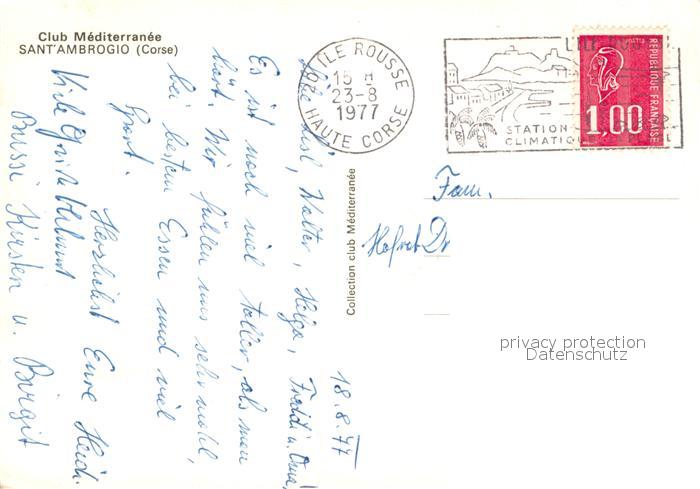 Club Méditerranée
SANT'AMBROGIO (Corse)
L'ILE ROUSSE
15 H
23-8
1977
HAUTE CORSE
STATION
CLIMATIQ
REPUBLIQUE FRANÇAISE
1,00
Collection club Méditerranée
Fam.
Hofrat Dr
privacy protection
Datenschutz
18.8.77
Walter, Helga, Freddi u. Oma,
Es ist noch viel toller, als man
hört. Wir fühlen uns sehr wohl,
bei bestem Essen und viel
Sport.
Herzlichst Eure Heidi
Viele Grüße Helmut
Bussi Kirsten u. Birgit